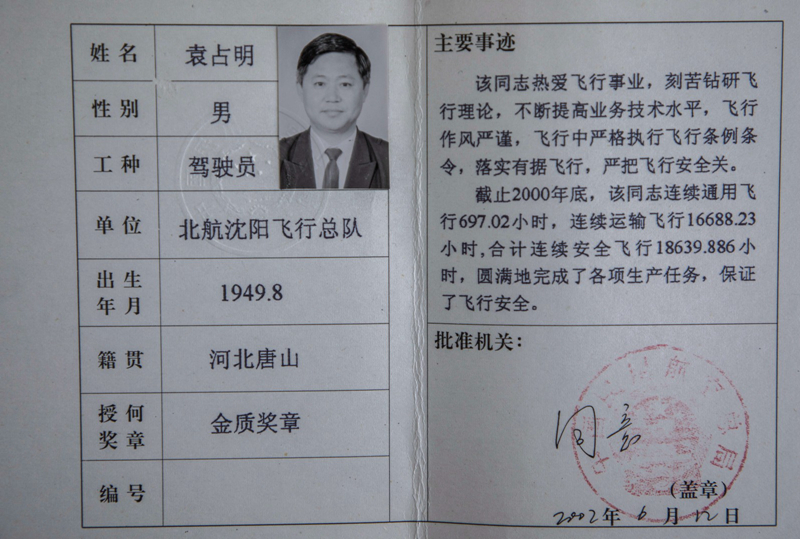 姓名 袁占明
性别 男
工种 驾驶员
单位 北航沈阳飞行总队
出生年月 1949.8
籍贯 河北唐山
授何奖章 金质奖章
编号
主要事迹
该同志热爱飞行事业，刻苦钻研飞
行理论，不断提高业务技术水平，飞行
作风严谨，飞行中严格执行飞行条例条
令，落实有据飞行，严把飞行安全关。
截止2000年底，该同志连续通用飞
行697.02小时，连续运输飞行16688.23
小时,合计连续安全飞行18639.886小
时，圆满地完成了各项生产任务，保证
了飞行安全。
批准机关：
同意
（盖章）
2002年 6 月 12 日